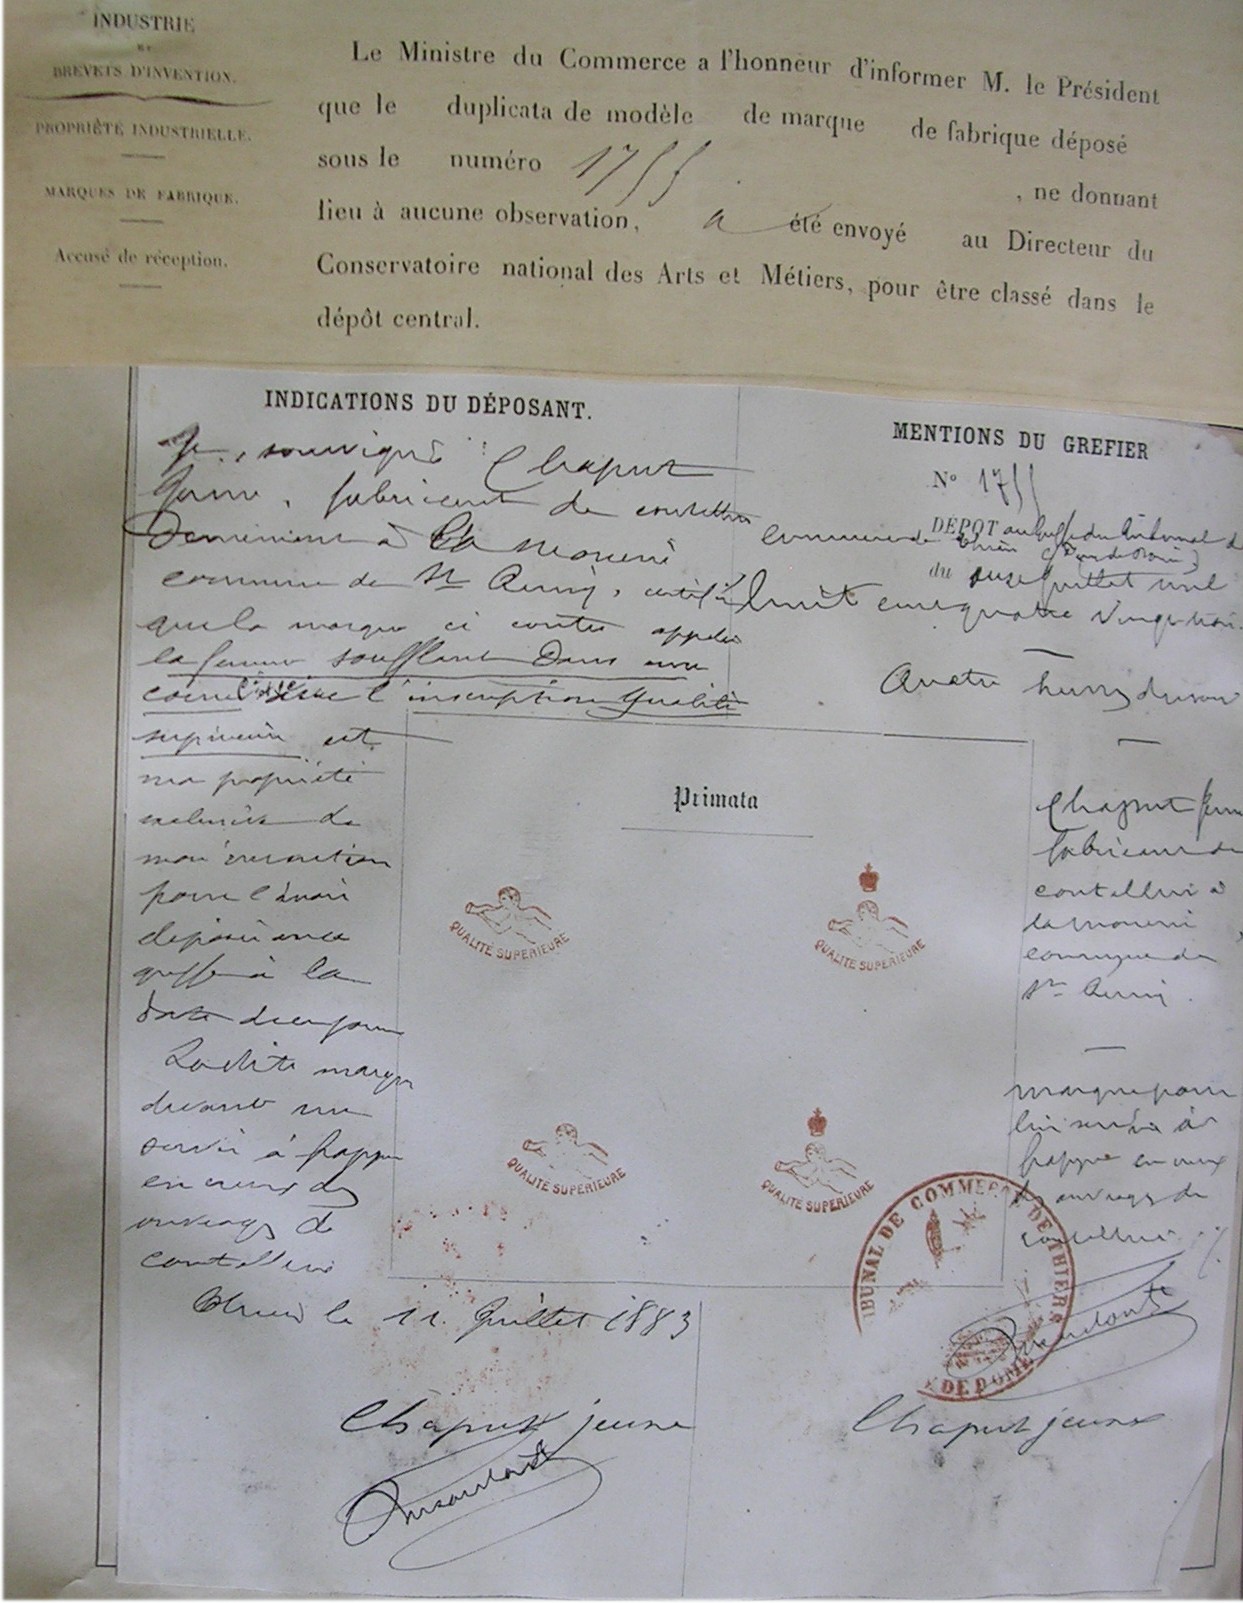 INDUSTRIE
ET
BREVETS D'INVENTION.
PROPRIÉTÉ INDUSTRIELLE.
MARQUES DE FABRIQUE.
Accusé de réception.
Le Ministre du Commerce a l'honneur d'informer M. le Président
que le duplicata de modèle de marque de fabrique déposé
sous le numéro 1755 , ne donnant
lieu à aucune observation, a été envoyé au Directeur du
Conservatoire national des Arts et Métiers, pour être classé dans le
dépôt central.
INDICATIONS DU DÉPOSANT.
Je soussigné Chaput
jeune, fabricant de coutellerie
Demeurant à La monerie
commune de St Remy, certifie
que la marque ci contre appelée
la femme soufflant Dans une
corne l'inscription Qualité
supérieure est
ma propriété
exclusive de
mon invention
pour l'avoir
déposée au
greffe à la
date de ce jour
Ladite marque
devant me
servir à frapper
en creux des
ouvrages de
coutellerie
Thiers le 11 Juillet 1883
Chaput jeune
MENTIONS DU GREFIER
No 1755
DÉPOT au Greffe du tribunal de
commerce de Thiers (Puy de Dôme)
du onze Juillet mil
huit cent quatre vingt trois
Quatre heures du soir
Chaput jeune
fabricant de
coutellerie à
la monerie
commune de
St Remy.
marque pour
lui servir à
frapper en creux
des ouvrages de
coutellerie
Chaput jeune
Primata
QUALITÉ SUPÉRIEURE
QUALITÉ SUPÉRIEURE
QUALITÉ SUPÉRIEURE
QUALITÉ SUPÉRIEURE
TRIBUNAL DE COMMERCE DE THIERS
DE DOME